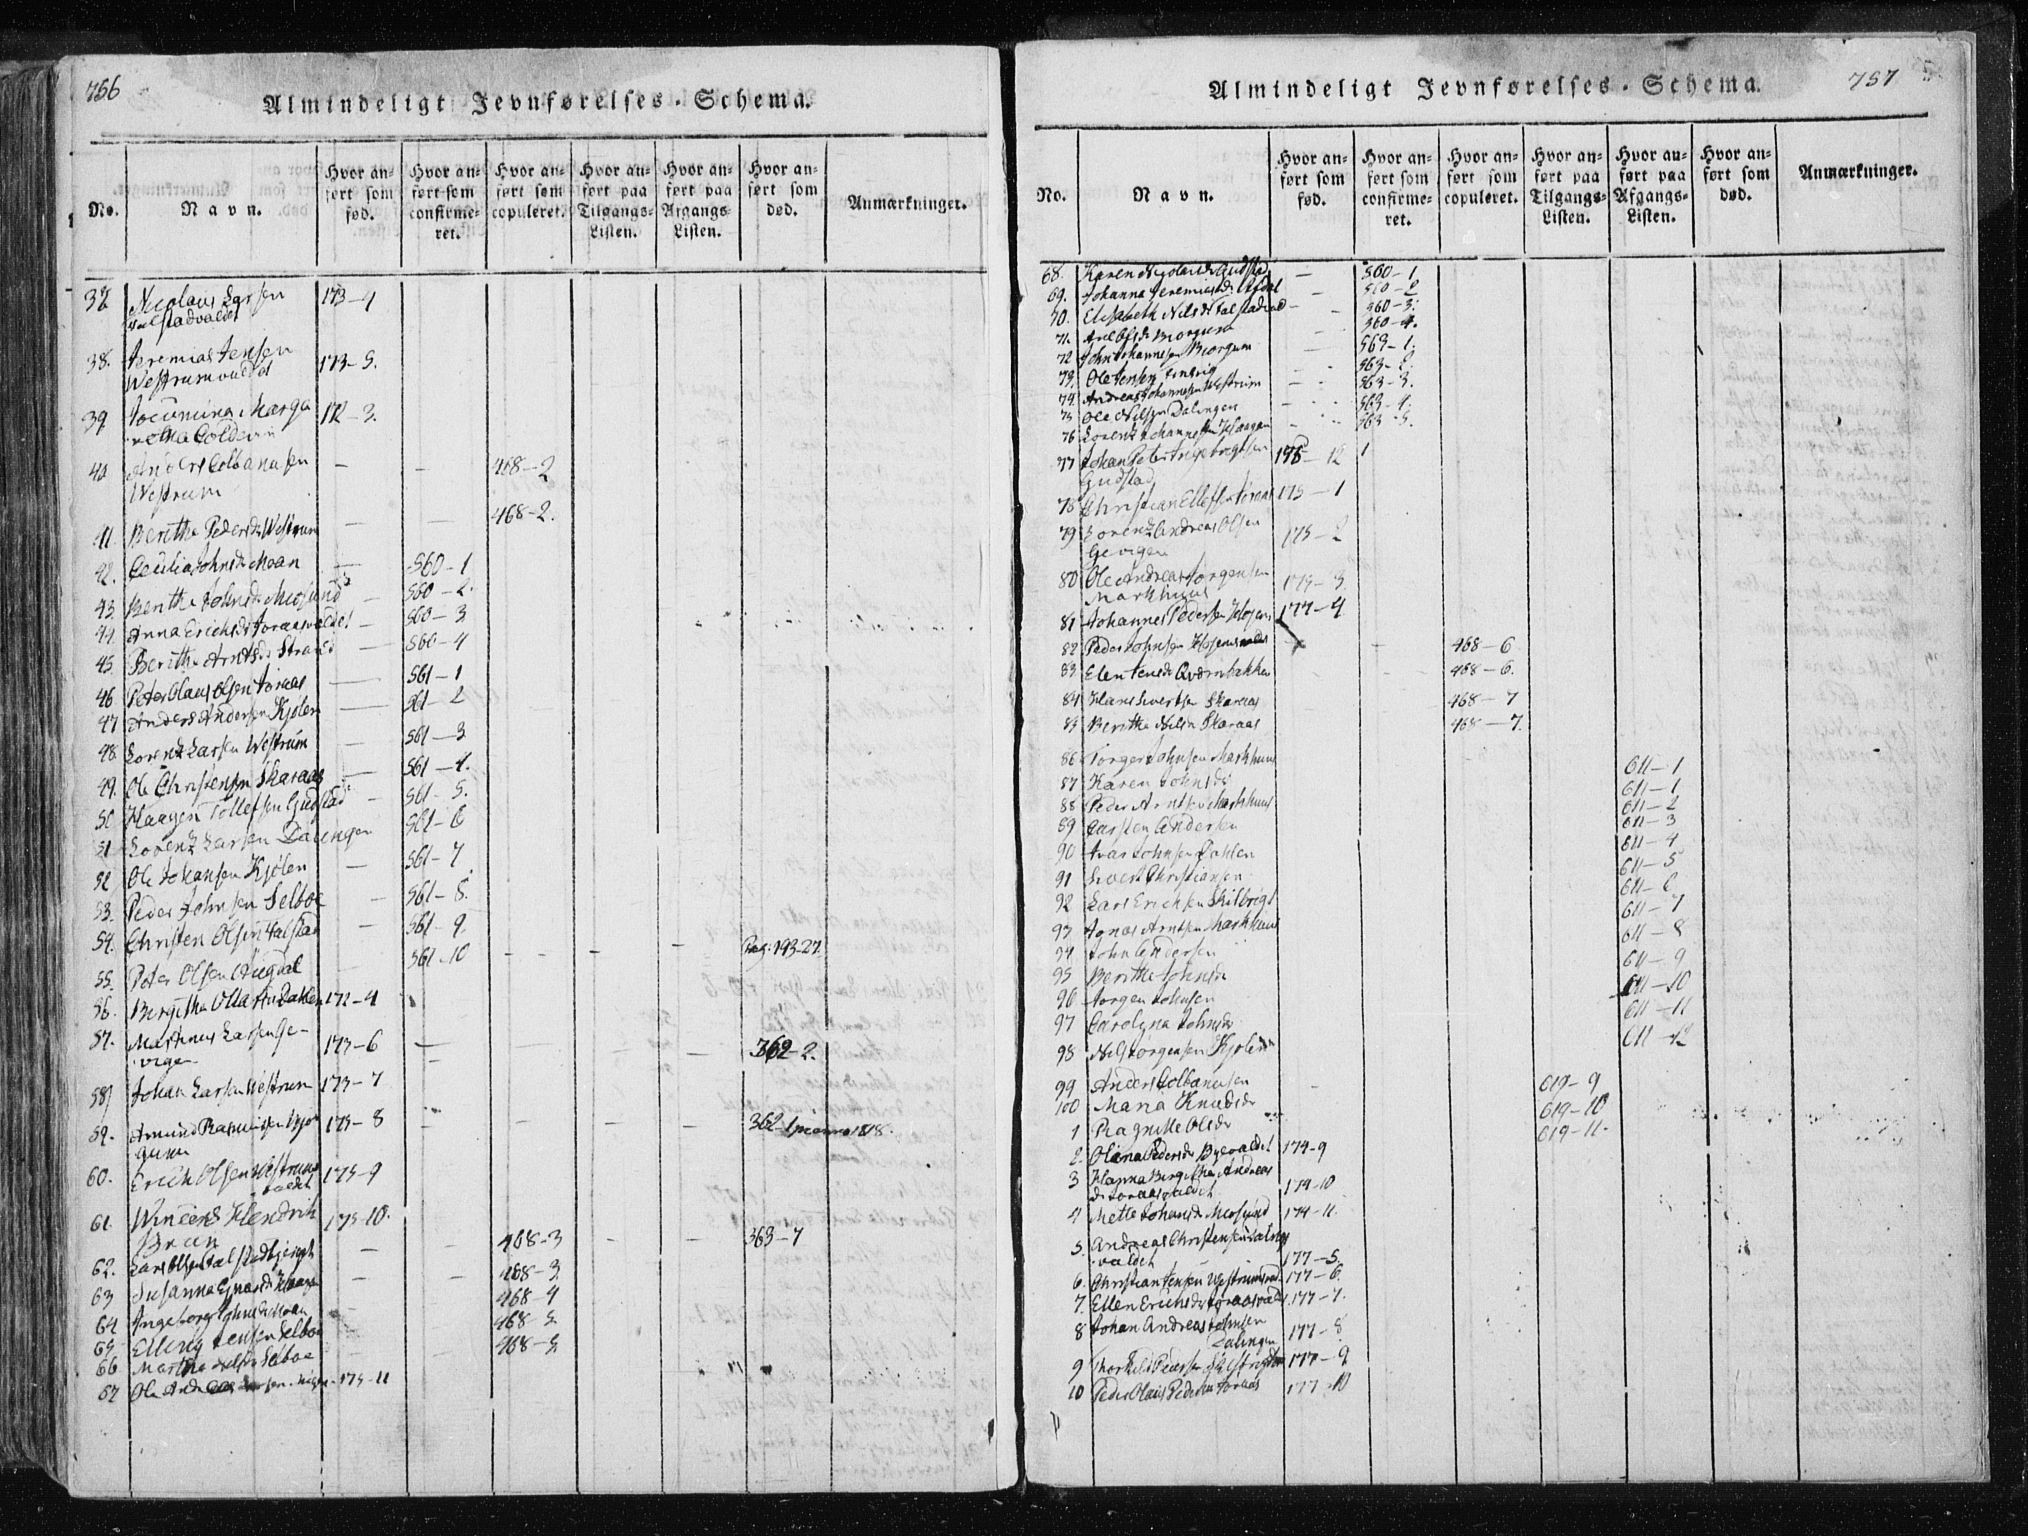 756
Almindeligt Jevnførelses-Schema.
No. Navn. Hvor anført som fød. Hvor anført som confirmeret. Hvor anført som copuleret. Hvor anført paa Tilgangs-Listen. Hvor anført paa Afgangs-Listen. Hvor anført som død. Anmærkninger.
37 Nicolaus Larsen 173-4
38. Jeremias Jensen 173-5.
Westrumvaldet
39 172-3.
40 Anders Colbanusen — — 468-2
Westrum
41. Berithe Pedersdr Westrum — — 468-2.
42. Cecilia Johnsdr Moan — 560-1
43. Berithe Johnsdr Mosund — 560-2.
44 Anna Erichsdr Joraasvaldet — 560-3
45. Berithe Arntsdr Strand — 560-4
46. Peter Olaus Olsen Joraas — 561-1
47 Anders Andersen Kjølen — 561-2
48. Lorentz Larsen Westrum — 561-3
49. Ole Christensen Skaraas — 561-4.
50 Haagen Tollefsen Gudstad — 561-5.
51 Lorentz Larsen Dalingen 561-6
52 Ole Johansen Kjølen — 561-7
53. Peder Johnsen Selboe — 561-8.
54. Christen Olsen Valstad — 561-9.
55. Peter Olsen — 561-10 - - - - Pag. 193-27.
56. Bergitha 172-4
57. Martinus Larsen Ge-
vigen 173-6 — — — — 362-2.
58 Johan Larsen Westrum 173-7
59. Amund Rasmussen Bjor 173-8 - - - - - 362-1
gum
60. Erich Olsen Westrum 173-9
valdet
61. Wincents Hendrich 173-10. - - 363-7
Brun
62. Lars Olsen — 468-3
63 Susanna — — 468-3
64 Ingeborg Johnsdr Moan — 468-4
65 Elling Jensen Selboe — 468-5
66 Martha Selboe — 468-5
67 Ole Andreas 173-11
757
Almindeligt Jevnførelses-Schema.
No. Navn. Hvor anført som fød. Hvor anført som confirmeret. Hvor anført som copuleret. Hvor anført paa Tilgangs-Listen. Hvor anført paa Afgangs-Listen. Hvor anført som død. Anmærkninger.
68. Karen Gudstad — 560-1
69. Johanna Jeremiasdr — 560-2
70. Elisabeth Nilsdr — 560-3.
71. Bjorgum — 560-4.
72 John Johannesen Bjorgum — 563-1.
73. Ole Jensen — 563-2.
74. Andreas Johannesen Westrum — 563-3.
75 Ole Nilsen Dalingen — 563-4.
76 Lorentz Johannesen — 563-5.
77 Johan Peter Ingebrigtsen 175-12
Gudstad
78 Christian Joraas 175-1
79 Lorentz Andreas Olsen 175-2
Gevigen
80 Ole Andreas Jørgensen 175-3
Markhuus
81 Johannes Pedersen 177-4
82 Peder Johnsen - - 468-6
83 Elen Jensdr Qvernbakken - - 468-6.
84 Hans Sivertsen Skaraas 468-7
85 Berithe Nilsdr Skaraas 468-7.
86 Torger Johnsen Markhuus 611-1
87 Karen Johnsdr 611-1
88 Peder Arntsen Markhuus 611-2
89 Carsten Andersen 611-3
90 Ivar Johnsen Dahlen 611-4
91 Sivert Christiansen 611-5
92 Lars Erichsen Skilbrigt 611-6
93 Jonas Arntsen Markhuus 611-7
94 John Andersen 611-8
95 Berithe Johnsdr 611-9
96 Jorgen Johnsen 611-10
97 Carolyna Johnsdr 611-11
98 Nils Jørgensen Kjølen 611-12
99 Anders Colbanusen 619-9
100 Maria Knudsdr 619-10
1 Ragnille Olsdr 619-11.
2. Oliana Pedersdr 174-9
3 Hanna Bergitha Andreas
dr Joraasvaldet 174-10
4 Mette Johansdr Mosund 174-11.
5. Andreas Christensen
valdet 177-5.
6. Christian Jensen 177-6.
7. Ellen Erichsdr Joraasvaldet 177-7.
8 Johan Andreas Johnsen
Dalingen 177-8
9 177-9
10 Peder Olaus Pedersen Joraas 177-10